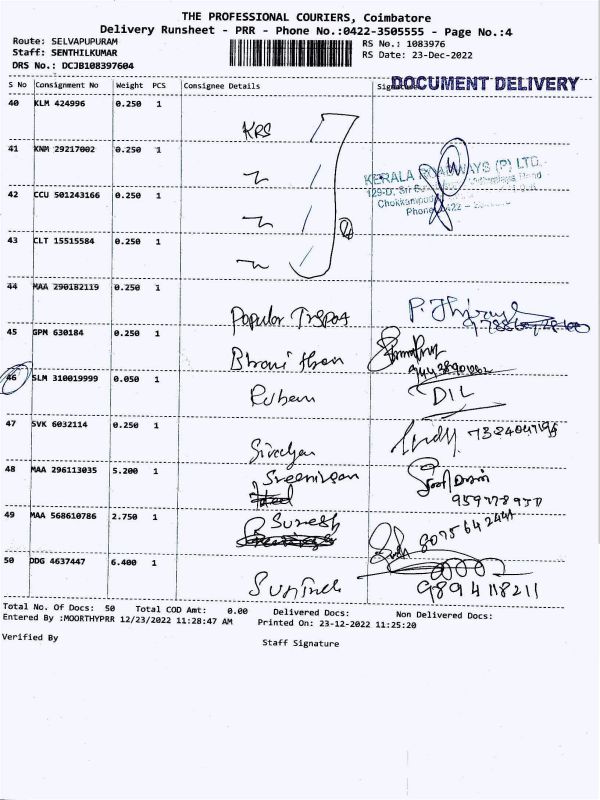 THE PROFESSIONAL COURIERS, Coimbatore
Delivery Runsheet - PRR - Phone No.:0422-3505555 - Page No.:4
Route: SELVAPUPURAM
RS No.: 1083976
Staff: SENTHILKUMAR
RS Date: 23-Dec-2022
DRS No.: DCJB108397604
DOCUMENT DELIVERY
S No Consignment No Weight PCS Consignee Details
40 KLM 424996 0.250 1
KRS
41 KNM 29217002 0.250 1
KERALA ROADWAYS (P) LTD.
42 CCU 501243166 0.250 1
129-D, Sri
Phone 0422 -
43 CLT 15515584 0.250 1
44 MAA 290182119 0.250 1
Popular
45 GPM 630184 0.250 1
46 SLM 310019999 0.050 1
Ruben DIL
47 SVK 6032114 0.250 1
48 MAA 296113035 5.200 1
Sreenivasan
49 MAA 568610786 2.750 1
Suresh
50 DDG 4637447 6.400 1
9894118211
Total No. Of Docs: 50 Total COD Amt: 0.00 Delivered Docs: Non Delivered Docs:
Entered By :MOORTHYPRR 12/23/2022 11:28:47 AM Printed On: 23-12-2022 11:25:20
Verified By Staff Signature